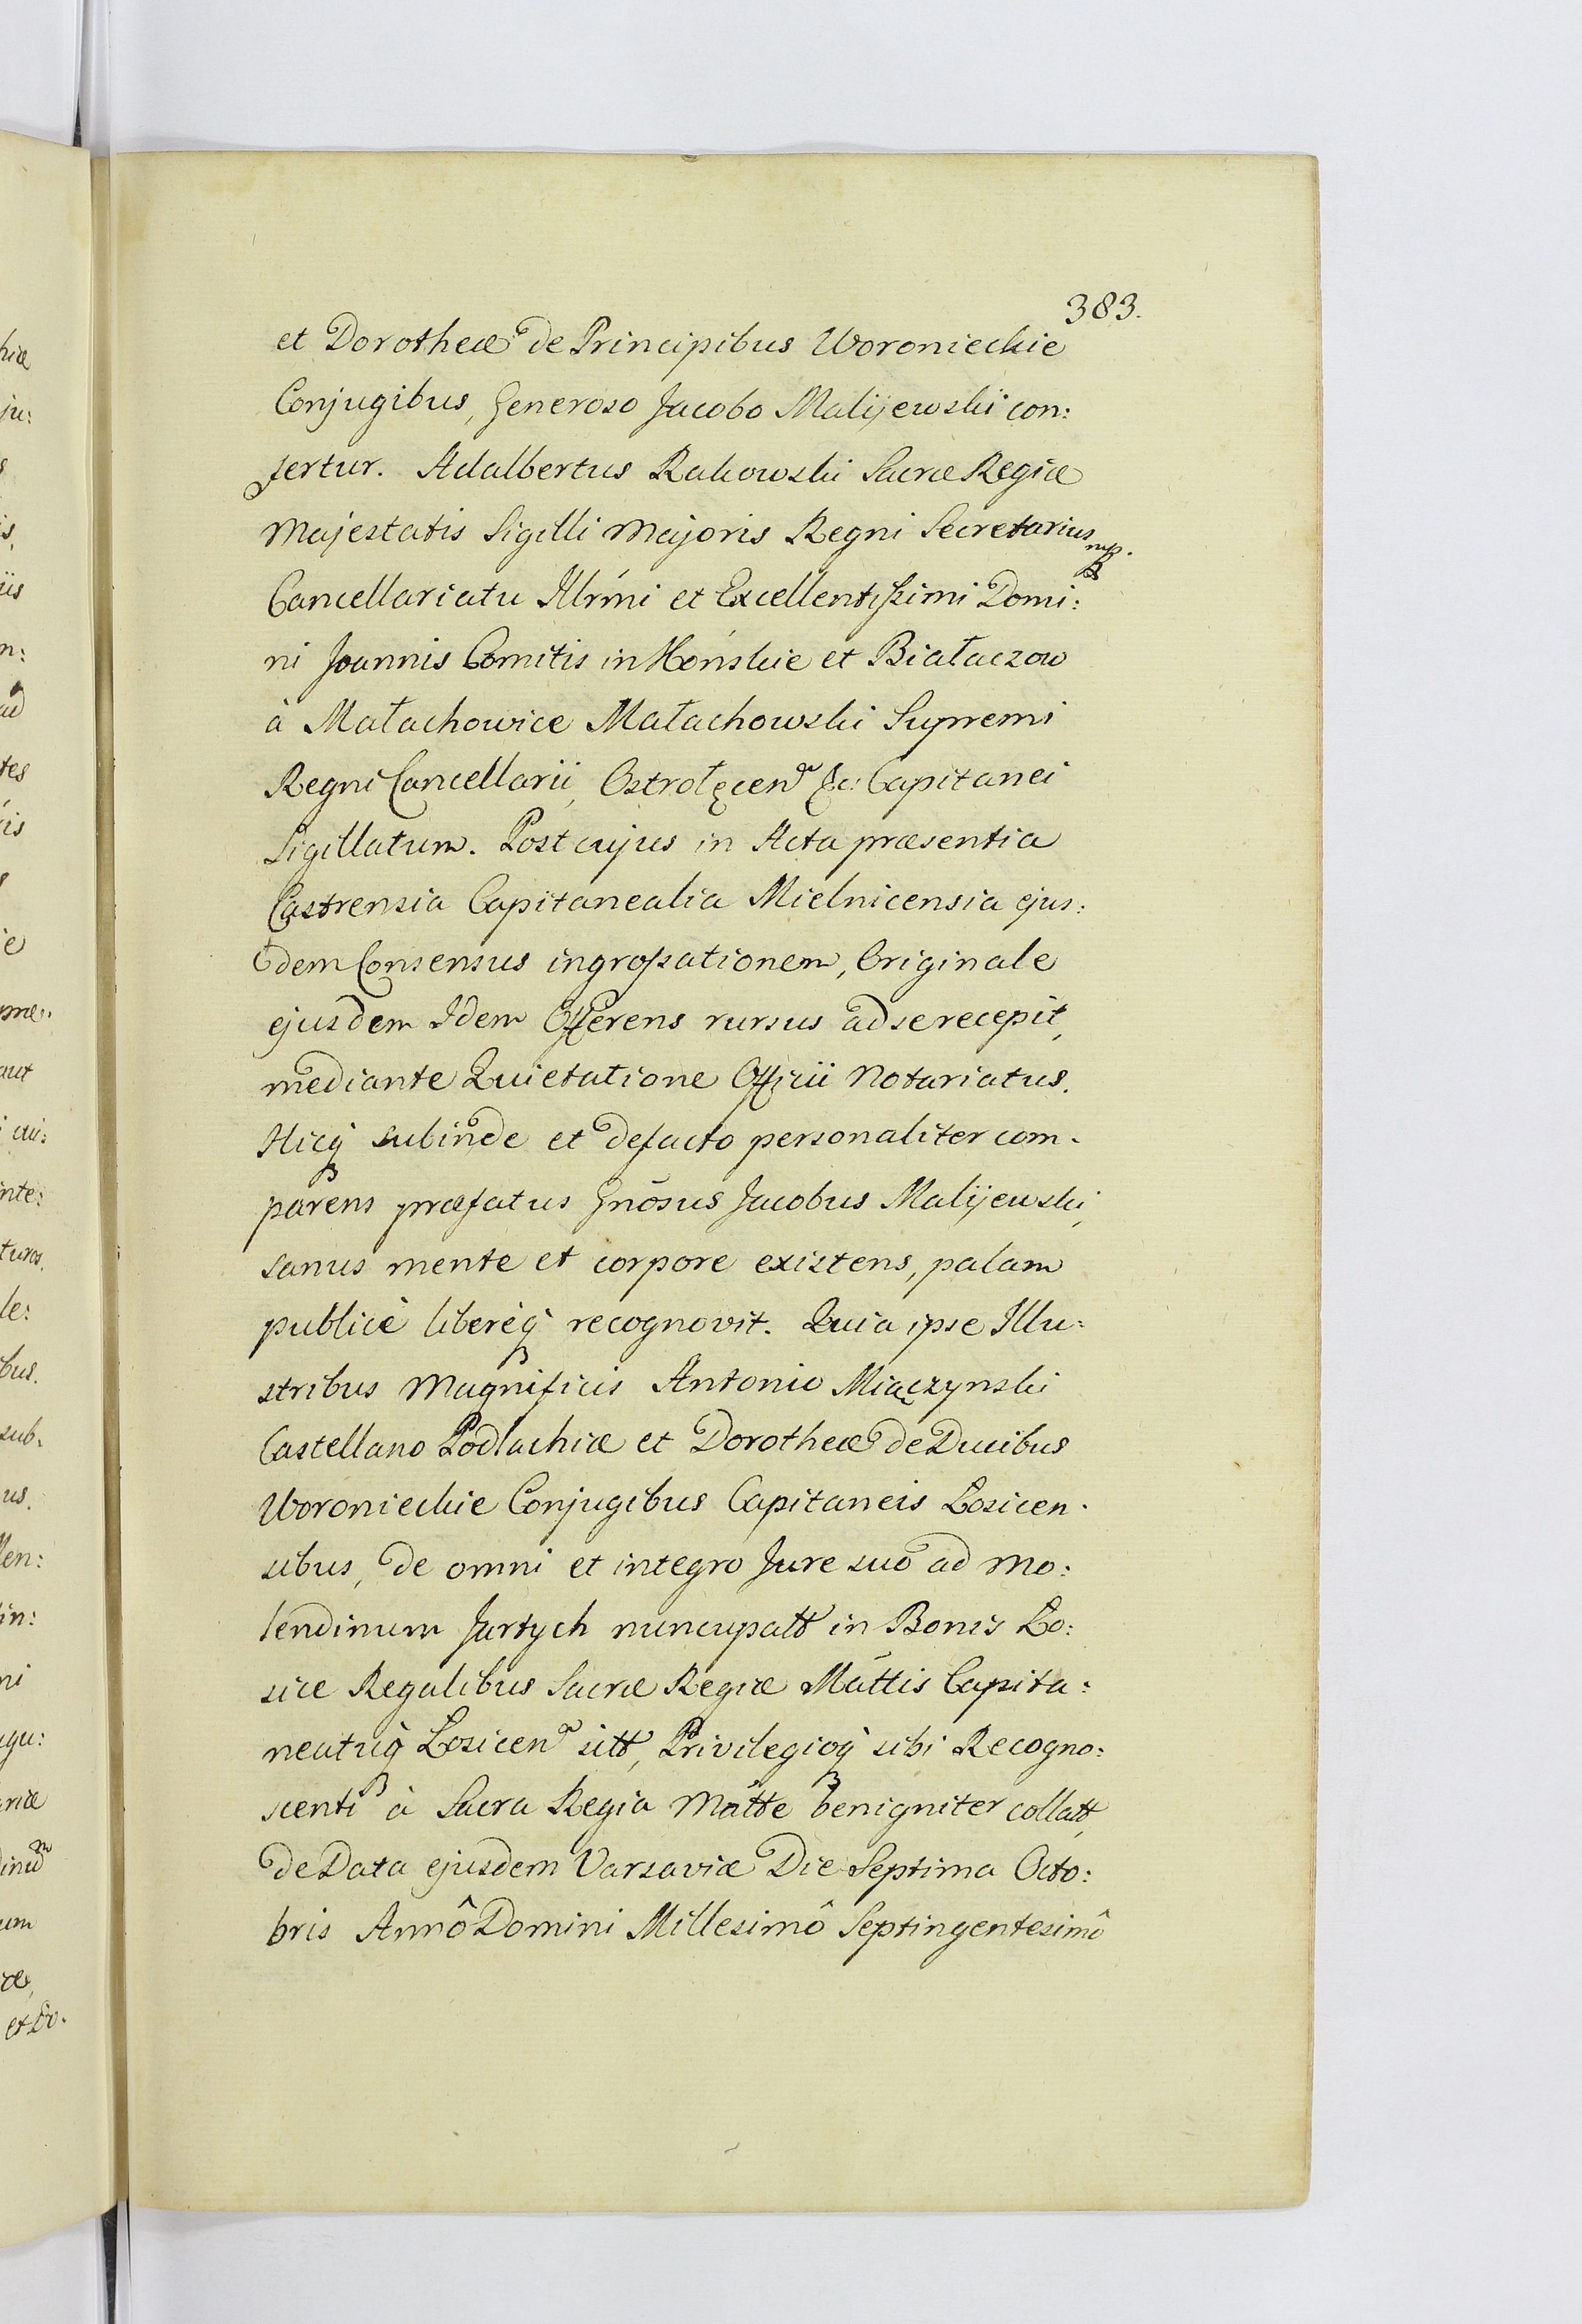 383.
et Dorotheæ de Principibus Woronieckie
Conjugibus, Generoso Jacobo Malijewski con:
fertur. Adalbertus Rakowski Sacræ Regiæ
Majestatis Sigilli Majoris Regni Secretarius mp.
Cancellariatu Illrm̃i et Excellentissimi Domi:
ni Joannis Comitis in Końskie et Białaczow
à Małachowice Małachowski Supremi
Regni Cancellarii, Ostrołęcen &c: Capitanei
Sigillatum. Post cujus in Acta præsentia
Castrensia Capitanealia Mielnicensia ejus:
dem Consensus ingrossationem, Originale
ejusdem Idem Offerens rursus ad se recepit,
mediante Quietatione Officii Notariatus.
Hicq́ subinde et defacto personaliter com:
parens præfatus Gnõsus Jacobus Malijewski,
sanus mente et corpore existens, palam
publicè liberèq́ recognovit. Quia ipse Illu:
stribus Magnificis Antonio Miączynski
Castellano Podlachiæ et Dorotheæ de Ducibus
Woronieckie Conjugibus Capitaneis Łosicen:
sibus, de omni et integro Jure suo ad Mo:
lendinum Jartych nuncupatt in Bonis Ło:
sice Regalibus Sacræ Regiæ Mãttis Capita:
neatuq́ Łosicen sitt, Privilegioq́ sibi Recogno:
scenti à Sacra Regia Mãtte benigniter collatt,
de Data ejusdem Varsaviæ Die Septima Octo:
bris Annô Domini Millesimô Septingentesimô